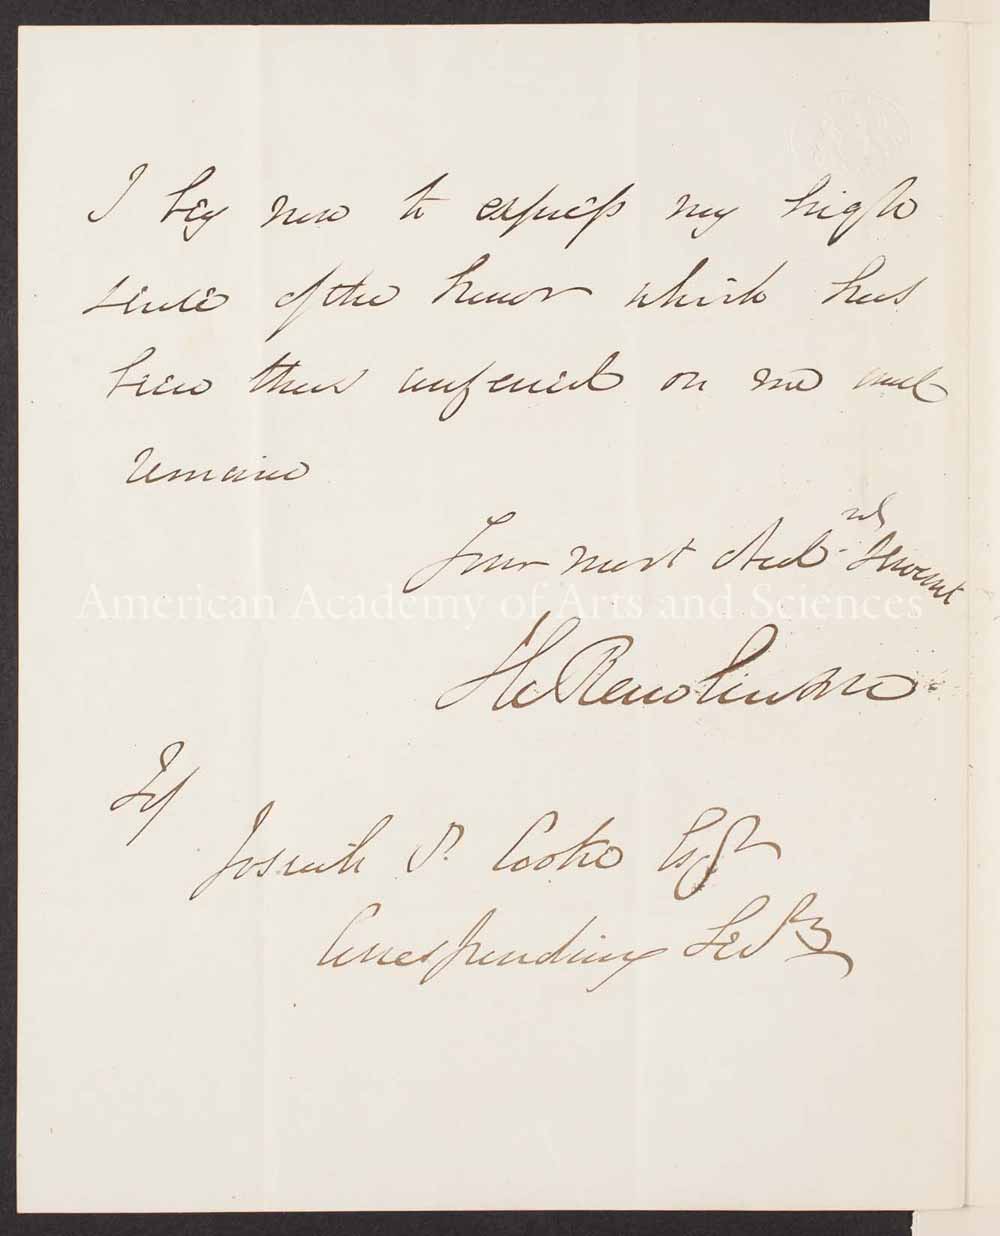 I beg now to express my high
sense of the honor which has
been thus conferred on me and
remain
Your most Obed.nt Servant
H C Rawlinson
To
Josiah P. Cooke Esqr
Corresponding Secry
American Academy of Arts and Sciences